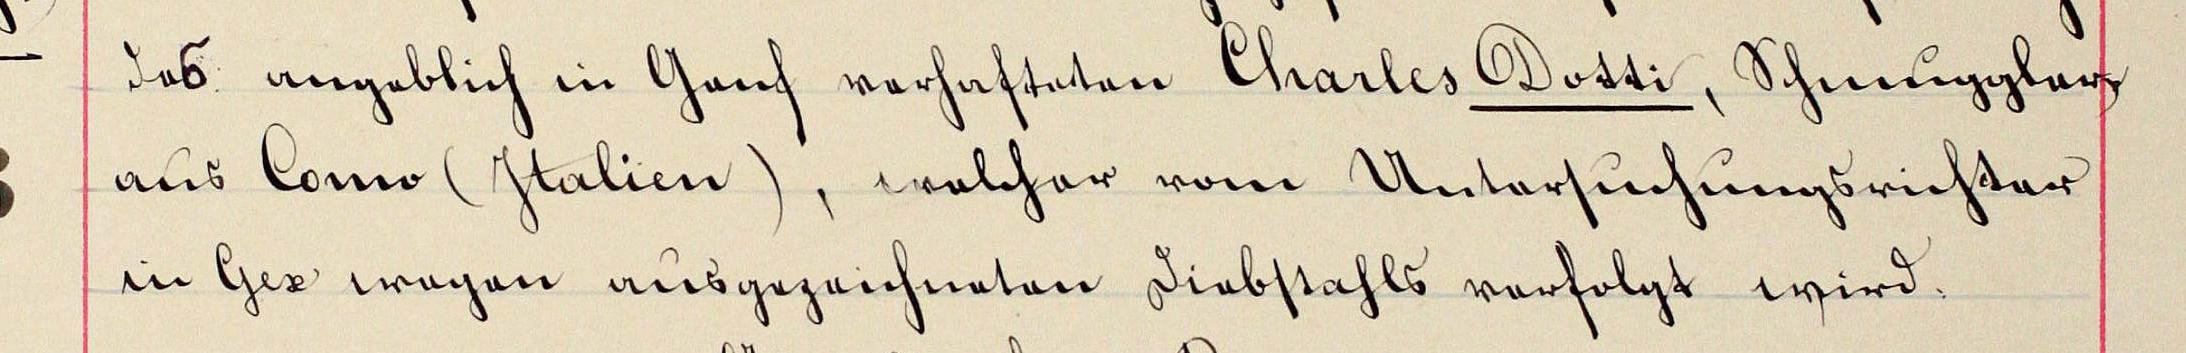 des angeblich in Genf verhafteten Charles Dotti, Schmuggler,
aus Como (Italien), welcher vom Untersuchungsrichter
in Gex wegen ausgezeichneten Diebstahls verfolgt wird.